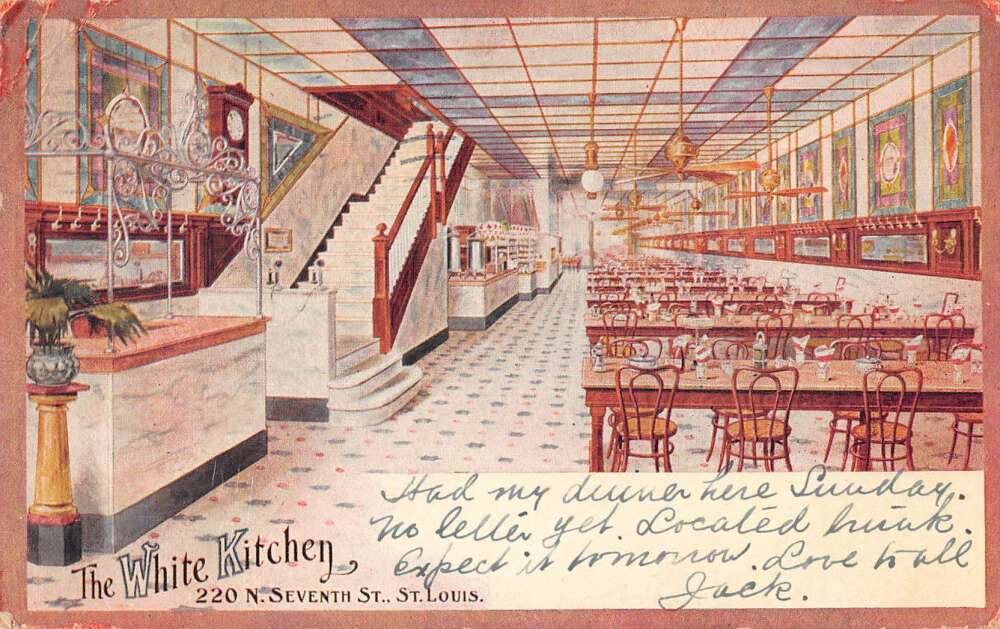 Had my dinner here Sunday.
No letter yet. Located trunk.
Expect it tomorrow. Love to all
Jack.
The White Kitchen
220 N. SEVENTH ST., ST. LOUIS.